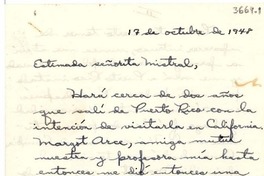 3669-1
17 de octubre de 1948
Estimada señorita Mistral,
Hará cerca de dos años
que salí de Puerto Rico con la
intención de visitarla en California.
Margot Arce, amiga mutua
nuestra y profesora mía hasta
entonces me dió entonces una